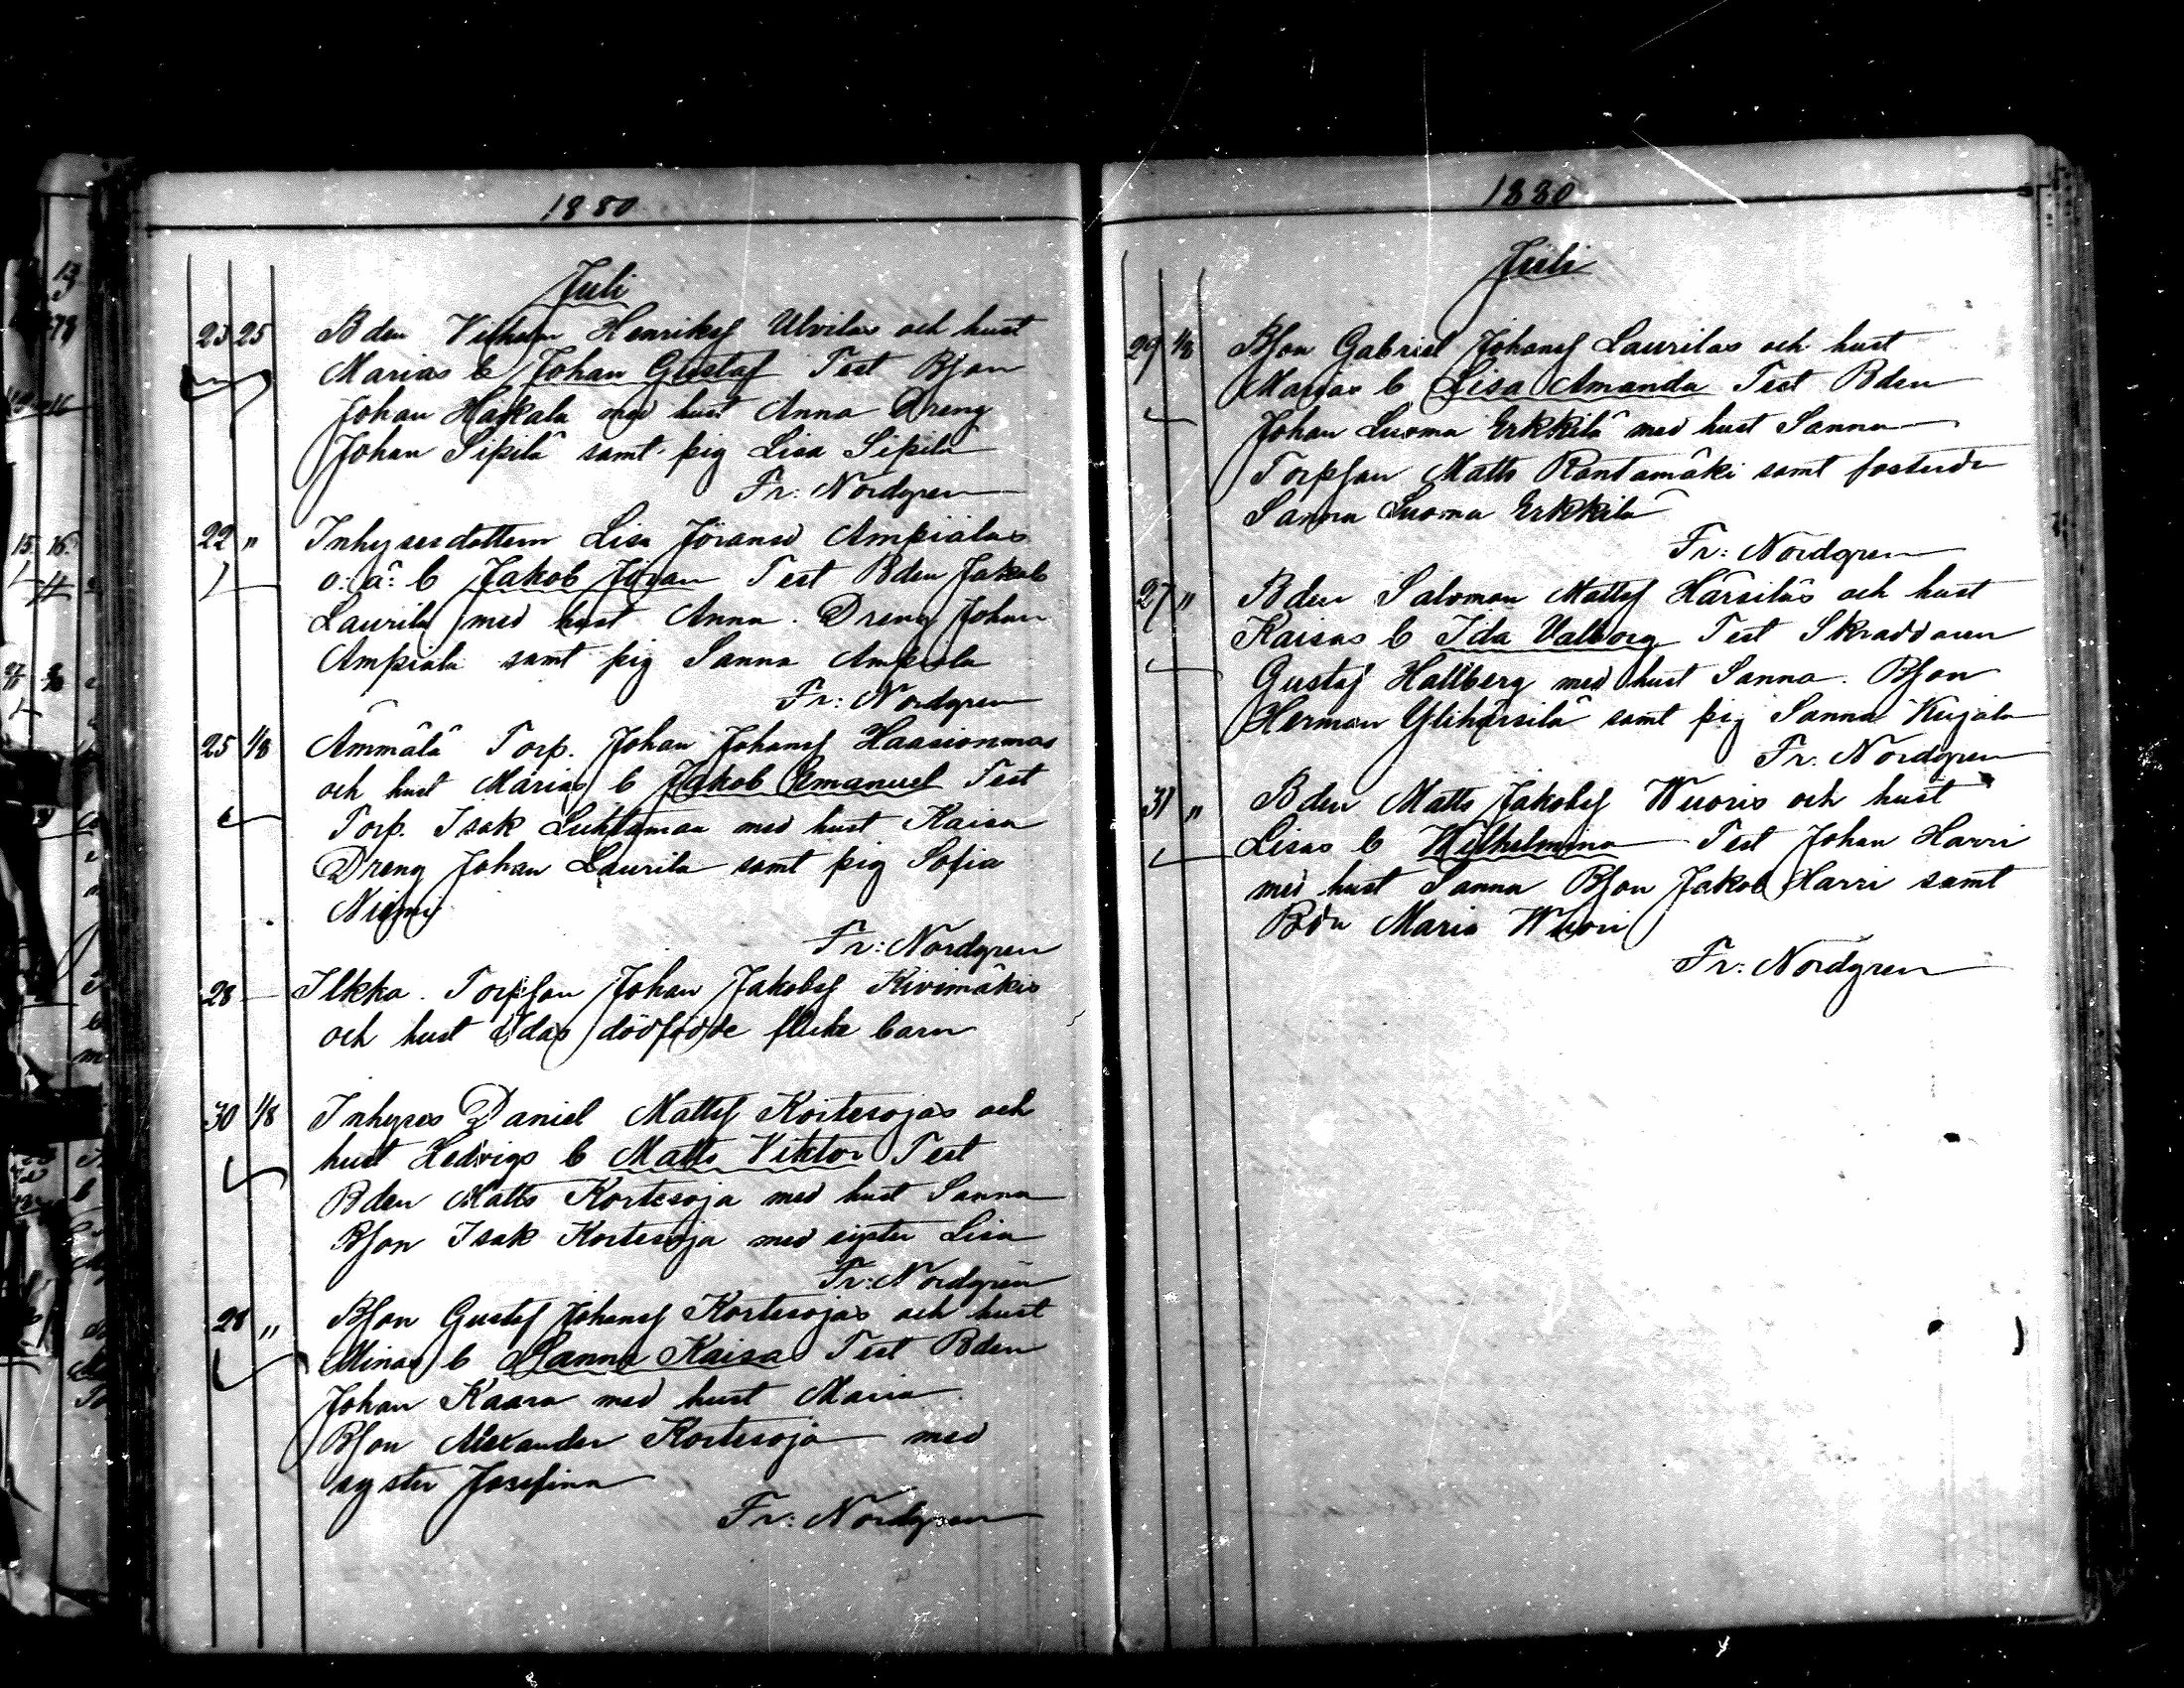 1880
Juli
23 25 Bden Vilhelm Henriksf Ulvilas och hust
Marias b Johan Gustaf Test Bson
Johan Hakala med hust Anna Dreng
Johan Sipilä samt pig Lisa Sipilä
Fr: Nordgren
22 " Inhysesdottern Lisa Jöransd Ampialas
o: ä: b Jakob Joran Test Bden Jakob
Laurila med hust Anna. Dreng Johan
Ampiala samt pig Sanna Ampiala
Fr: Nordgren
25 1/8 Ämmälä Torp. Johan Johansf Haasionmas
och hust Marias b Jakob Emanuel Test
Torp. Isak Luhtamaa med hust Kaisa
Dreng Johan Laurila samt pig Sofia
Niemi
Fr: Nordgren
28 — Ilkka. Torpson Johan Jakobsf Kivimäkis
och hust Idas dödfödde flicke barn
30 1/8 Inhyses Daniel Mattsf Kortesojas och
hust Hedvigs b Matts Viktor Test
Bden Matts Kortesoja med hust Sanna
Bson Isak Kortesoja med syster Lisa
Fr: Nordgren
28 " Bson Gustaf Johansf Kortesojas och hust
Minas b Sanna Kaisa Test Bden
Johan Kaara med hust Maria
Bson Alexander Kortesoja med
syster Josefina
Fr: Nordgren
1880
Juli
29 1/8 Bson Gabriel Johansf Laurilas och hust
Marias b Lisa Amanda Test Bden
Johan Luoma Erkkilä med hust Sanna
Torpson Matts Rantamäki samt fosterdr
Sanna Luoma Erkkilä
Fr: Nordgren
27 " Bden Salomon Mattsf Härsiläs och hust
Kaisas b Ida Valborg Test Skraddaren
Gustaf Hallberg med hust Sanna. Bson
Herman Ylihärsilä samt pig Sanna Kujala
Fr. Nordgren
31 " Bden Matts Jakobsf Wuoris och hust
Lisas b Wilhelmina Test Johan Harri
med hust Sanna Bson Jakob Harri samt
Bdr Maria Wuori
Fr: Nordgren